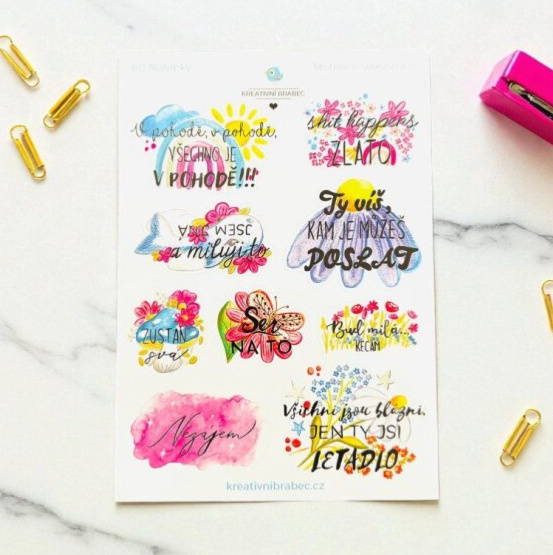 KREATIVNÍ BRABEC
V pohodě, v pohodě,
VŠECHNO JE
V POHODĚ!!!
shit happens
ZLATO
JSEM JINÁ
a miluji to
Ty víš,
KAM JE MŮŽEŠ
POSLAT
ZŮSTAŇ
svá
Ser
NA TO
Buď milá...
KECÁM
Nezájem
Všichni jsou blázni,
JEN TY JSI
LETADLO
kreativnibrabec.cz